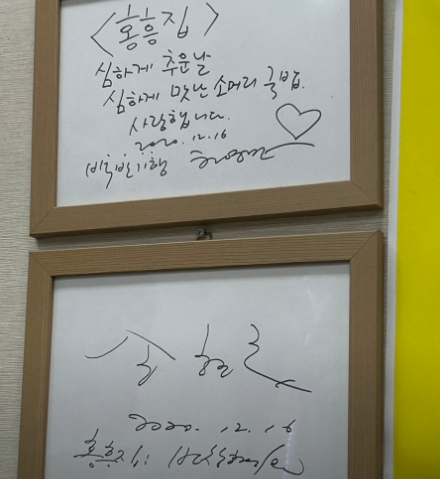 <홍흥집>
심하게 추운날
심하게 맛난 소머리 국밥.
사랑합니다.
2020. 12. 16
백반기행 허영만
2020. 12. 16
홍흥집!